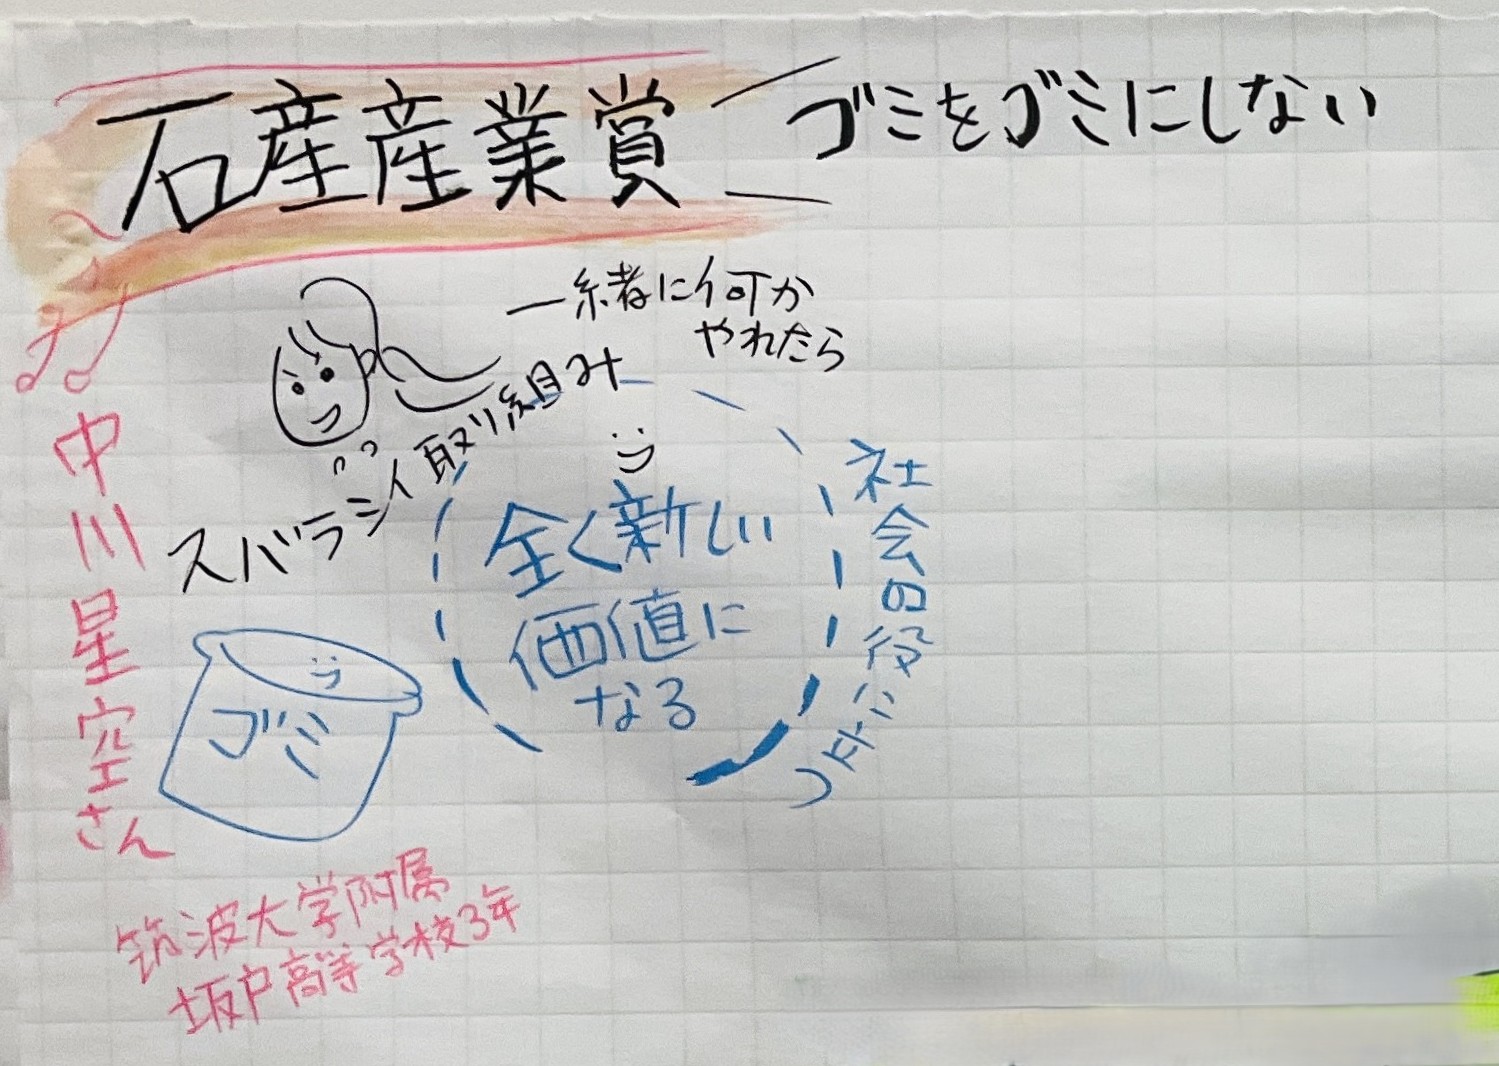 石産産業賞
ゴミをゴミにしない
一緒に何か
やれたら
スバラシイ取り組み
全く新しい
価値に
なる
社会の役に立つ
ゴミ
中川星空さん
筑波大学附属
坂戸高等学校3年